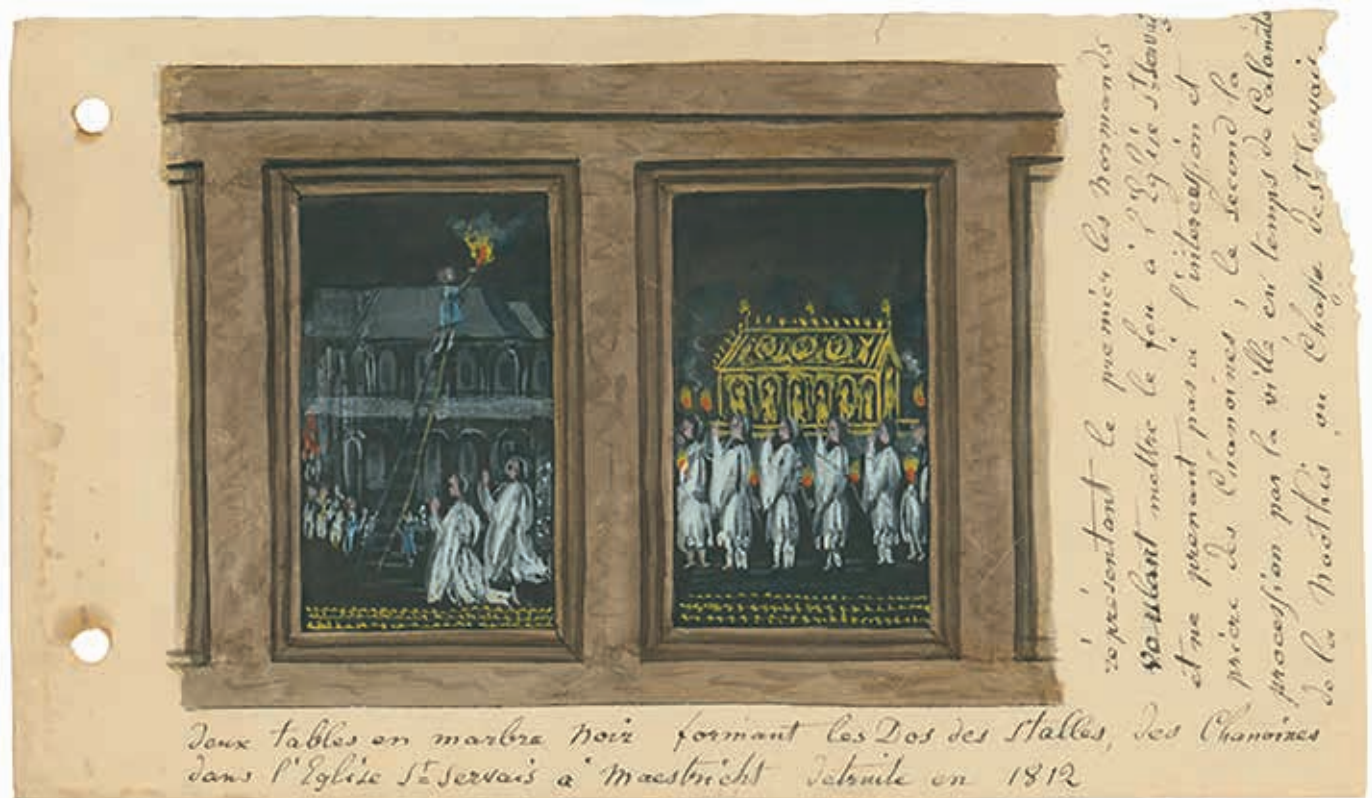 deux tables en marbre noir formant les Dos des stalles, des Chanoines
dans l'Eglise St Servais a Maestricht detruite en 1812
representant le premier les Normands
voulant mettre le feu à l'Eglise st Servais
et ne prenant pas a l'intercession et
priere des Chanoines, le second la
procession par la ville en temps de Calamités
de la Noothis ou Chasse de st Servais,